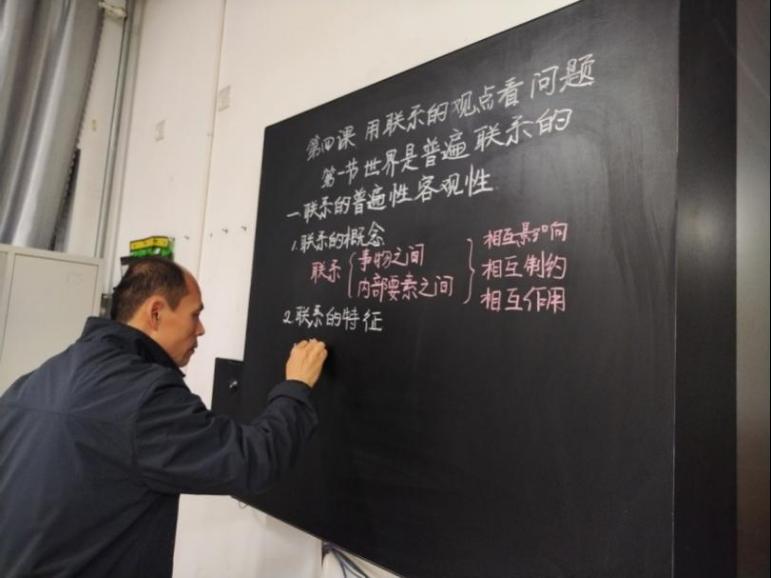 第四课 用联系的观点看问题
第一节世界是普遍联系的
一联系的普遍性客观性
1.联系的概念
联系{事物之间 内部要素之间}相互影响 相互制约 相互作用
2.联系的特征